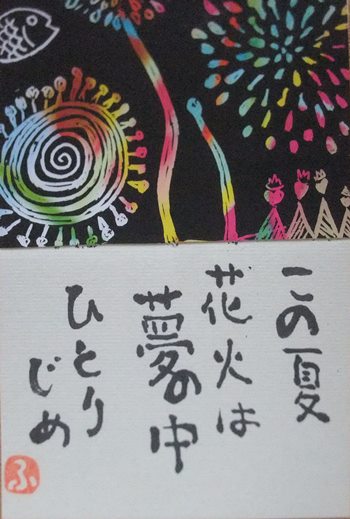 この夏
花火は
夢の中
ひとり
じめ
ふ